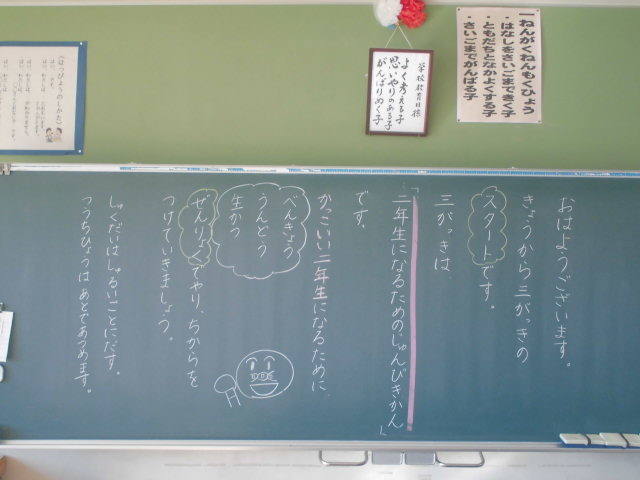 一ねんがくねんもくひょう
・はなしをさいごまできく子
・ともだちとなかよくする子
・さいごまでがんばる子
学校教育目標
よく考える子
思いやりのある子
がんばりぬく子
おはようございます。
きょうから三がっきの
スタートです。
三がっきは、
「二年生になるためのじゅんびきかん」
です。
かっこいい二年生になるために、
べんきょう
うんどう
生かつ
ぜんりょくでやり、ちからを
つけていきましょう。
しゅくだいはしゅるいごとにだす。
つうちひょうは あとであつめます。